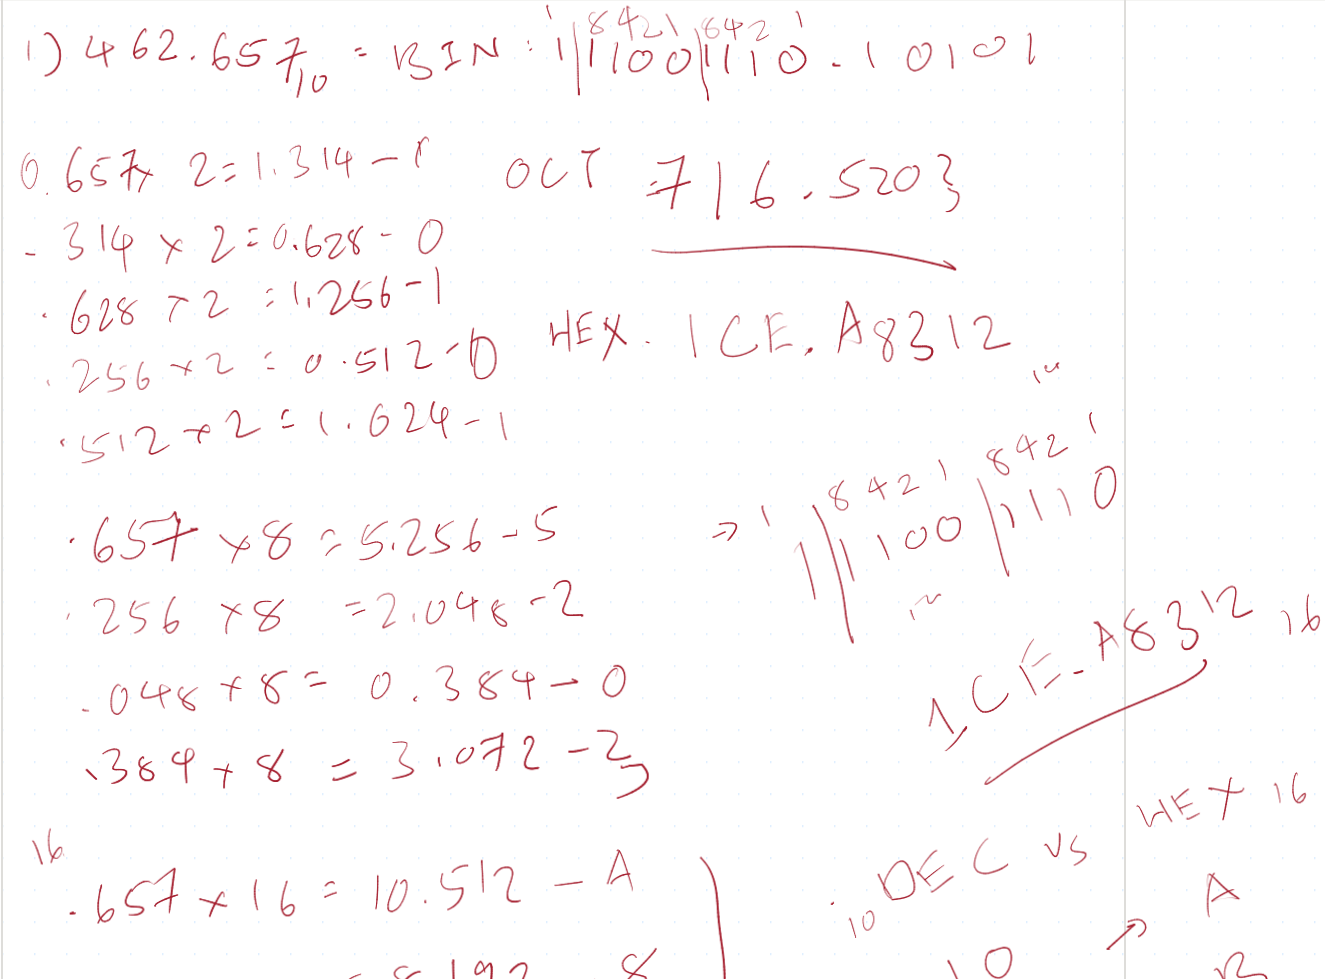 1) 462.657₁₀ = BIN : 1|1100|1110.10101
1 8421 842 1
0.657 x 2 = 1.314 - 1
OCT 716.5203
.314 x 2 = 0.628 - 0
.628 x 2 = 1.256 - 1
HEX. 1CE.A8312
.256 x 2 = 0.512 - 0
.512 x 2 = 1.024 - 1
1 8421 842 1
→ 1|1100|1110
.657 x 8 = 5.256 - 5
.256 x 8 = 2.048 - 2
.048 x 8 = 0.384 - 0
.384 x 8 = 3.072 - 3
1CE.A8312 16
16
.657 x 16 = 10.512 - A
10 DEC vs HEX 16
10 → A
= 8.192 8
B